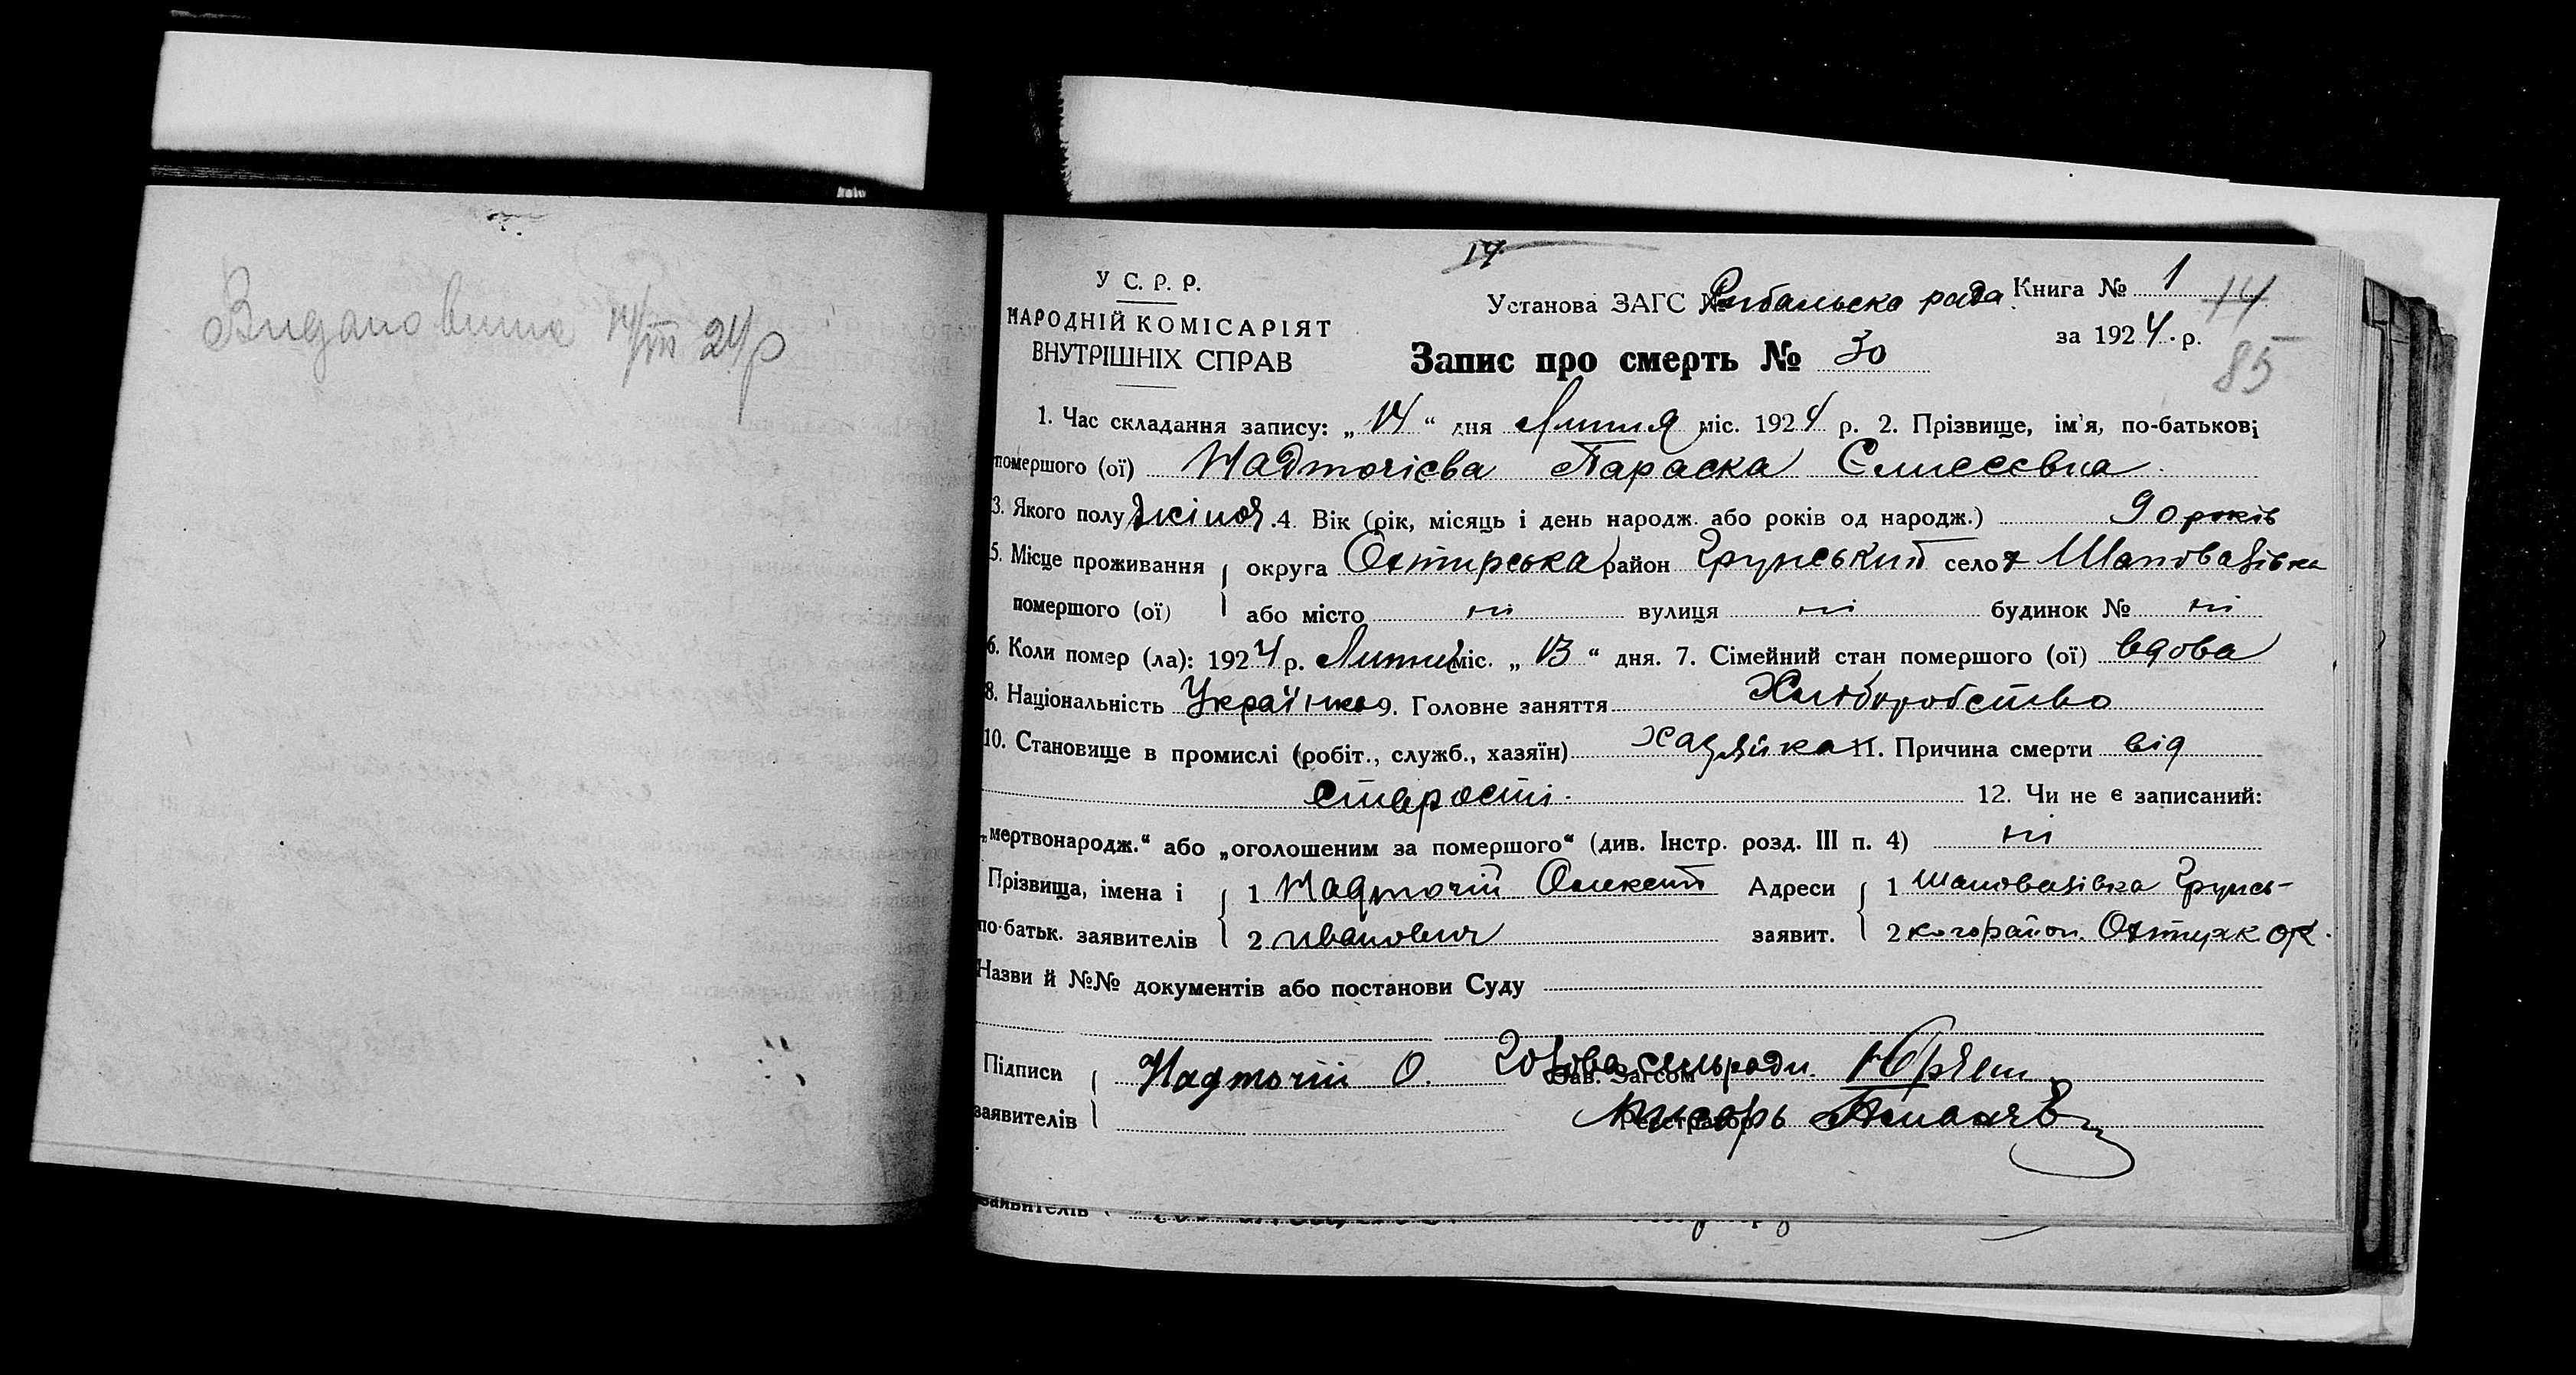 14
У С. Р. Р.
НАРОДНІЙ КОМІСАРІЯТ
ВНУТРІШНІХ СПРАВ
Установа ЗАГС № Рибальска рада
Книга № 1
14
за 1924 р.
85
Запис про смерть № 30
1. Час складання запису: „ 14 “ дня Липня міс. 1924 р. 2. Прізвище, ім'я, по-батькові
помершого (ої) Надточієва Параска Єлисеєвна
3. Якого полу жіноч. 4. Вік (рік, місяць і день народж. або років од народж.) 90 років
5. Місце проживання округа Охтирська район Грунський село х Шаповалівка
помершого (ої) або місто ні вулиця ні будинок № ні
6. Коли помер (ла): 1924 р. Липня міс. „ 13 “ дня. 7. Сімейний стан помершого (ої) вдова
8. Національність Українка 9. Головне заняття Хліборобство
10. Становище в промислі (робіт., служб., хазяїн) Хазяйка 11. Причина смерти від
старости. 12. Чи не є записаний:
„мертвонародж.“ або „оголошеним за помершого“ (див. Інстр. розд. III п. 4) ні
Прізвища, імена і 1 Надточій Олексій Адреси 1 Шаповалівка Грунсь-
по-батьк. заявителів 2 Иванович заявит. 2 кого район. Охтирк ок.
Назви й №№ документів або постанови Суду
Підписи Надточій О. Голова сельради Зав. Загсом
заявителів Писарь Реєстратор
заявителів